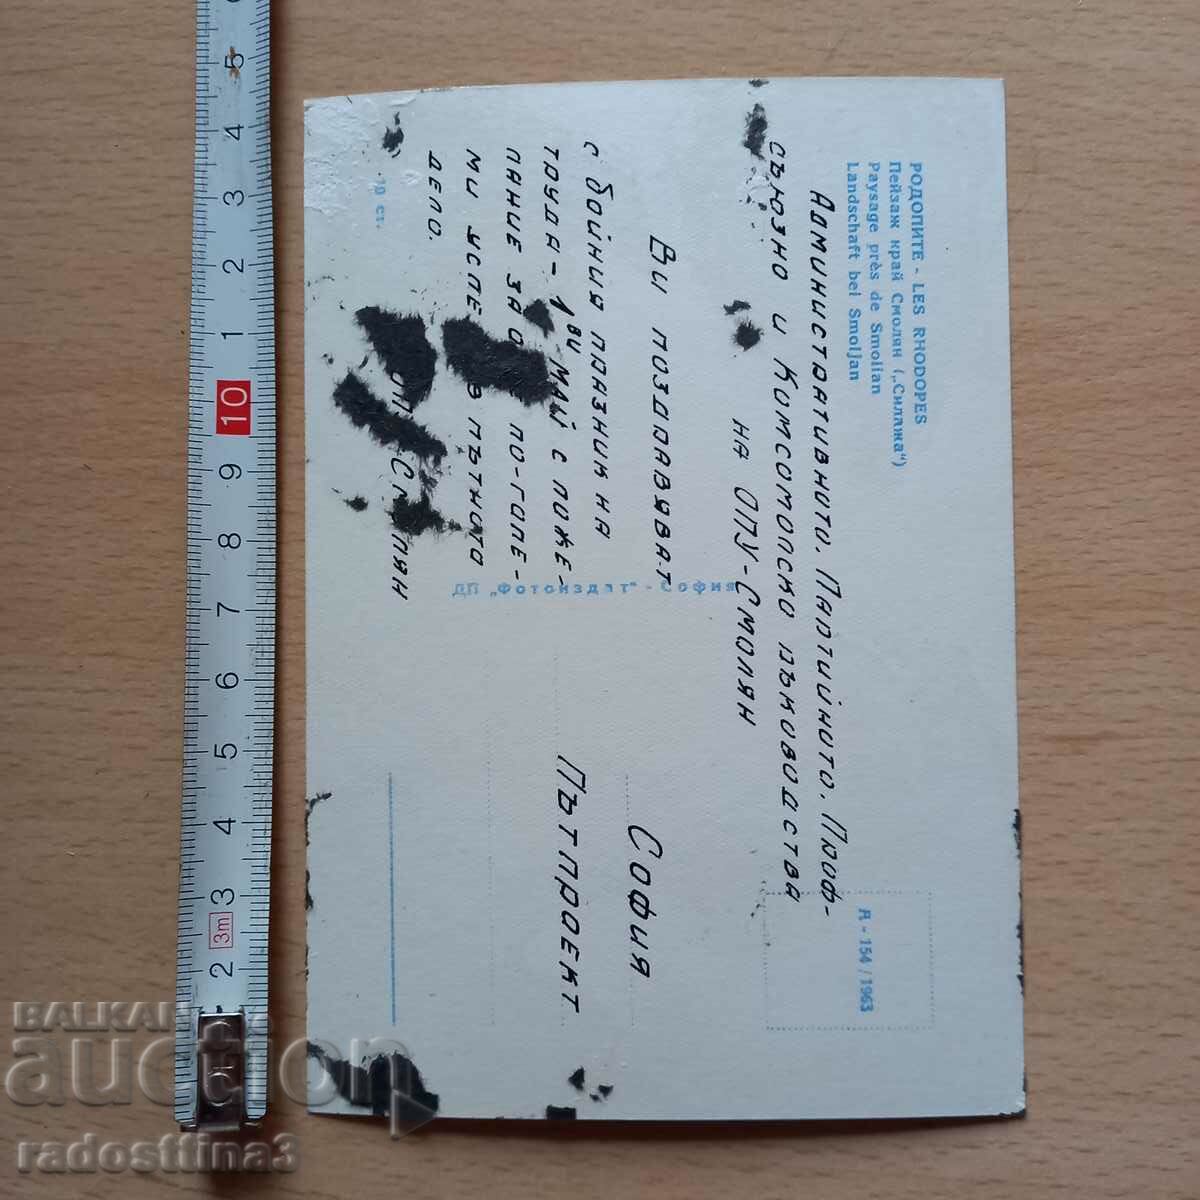 РОДОПИТЕ - LES RHODOPES
Пейзаж край Смолян („Силлжа“)
Paysage près de Smolian
Landschaft bei Smoljan
А - 154 / 1963
Административното, Партийното, Проф-
съюзно и Комсомолско ръководства
на ОПУ-Смолян
Ви поздравяват
с бойния празник на
труда - 1ви май с поже-
лание за по-голе-
ми успе в пътното
дело.
Смолян
10 ст.
ДП „Фотоиздат“ - София
София
Пътпроект
5
4
3
2
1
10
9
8
7
6
5
4
3
3m
2
BALKAN
auction
radosttina3